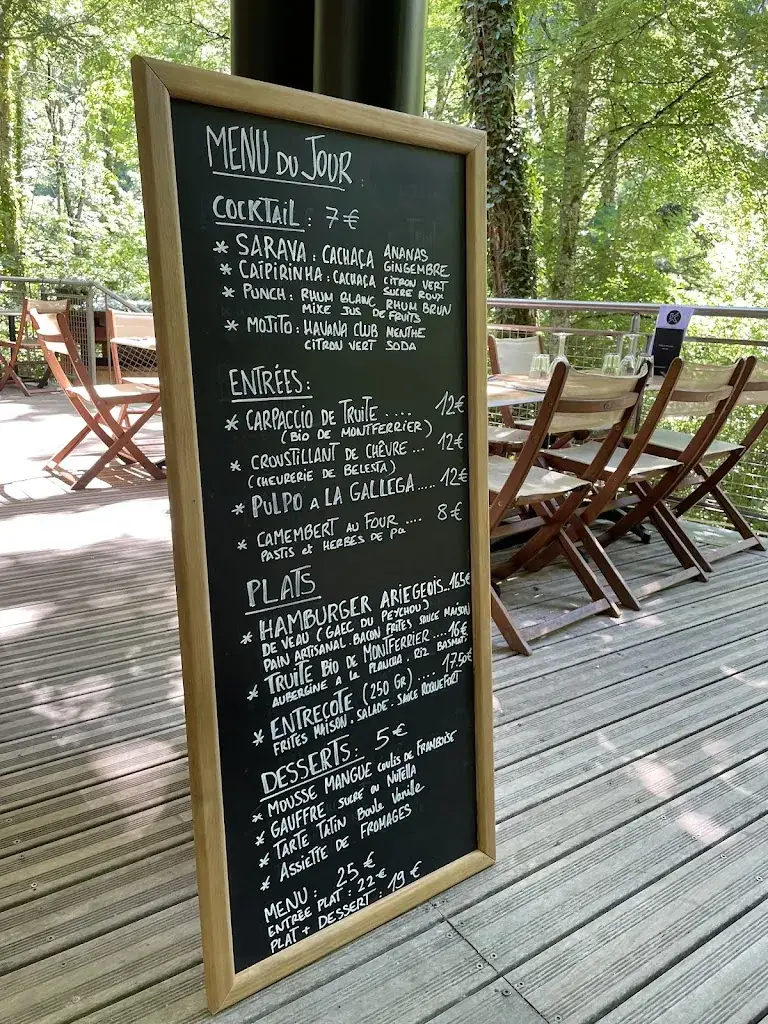 MENU DU JOUR
COCKTAIL : 7€
* SARAVA : CACHAÇA ANANAS GINGEMBRE
* CAÏPIRINHA : CACHAÇA CITRON VERT SUCRE ROUX
* PUNCH : RHUM BLANC RHUM BRUN
MIXE JUS DE FRUITS
* MOJITO : HAVANA CLUB MENTHE
CITRON VERT SODA
ENTRÉES :
* CARPACCIO DE TRUITE .... 12€
(BIO DE MONTFERRIER)
* CROUSTILLANT DE CHÊVRE ... 12€
(CHEVRERIE DE BELESTA)
* PULPO A LA GALLEGA ..... 12€
* CAMEMBERT AU FOUR .... 8€
PASTIS et HERBES DE PA
PLATS
* HAMBURGER ARIEGEOIS... 16.5€
DE VEAU (GAEC DU PEYCHOU)
PAIN ARTISANAL. BACON FRITES SAUCE MAISON
* TRUITE BIO DE MONTFERRIER .... 16€
AUBERGINE A LA PLANCHA . RIZ BASMATI
* ENTRECOTE (250 Gr) .... 17.50€
FRITES MAISON . SALADE . SAUCE ROQUEFORT
DESSERTS : 5€
* MOUSSE MANGUE COULIS DE FRAMBOISE
* GAUFFRE SUCRE OU NUTELLA
* TARTE TATIN BOULE VANILLE
* ASSIETTE DE FROMAGES
MENU : 25€
ENTRÉE PLAT : 22€
PLAT + DESSERT : 19€